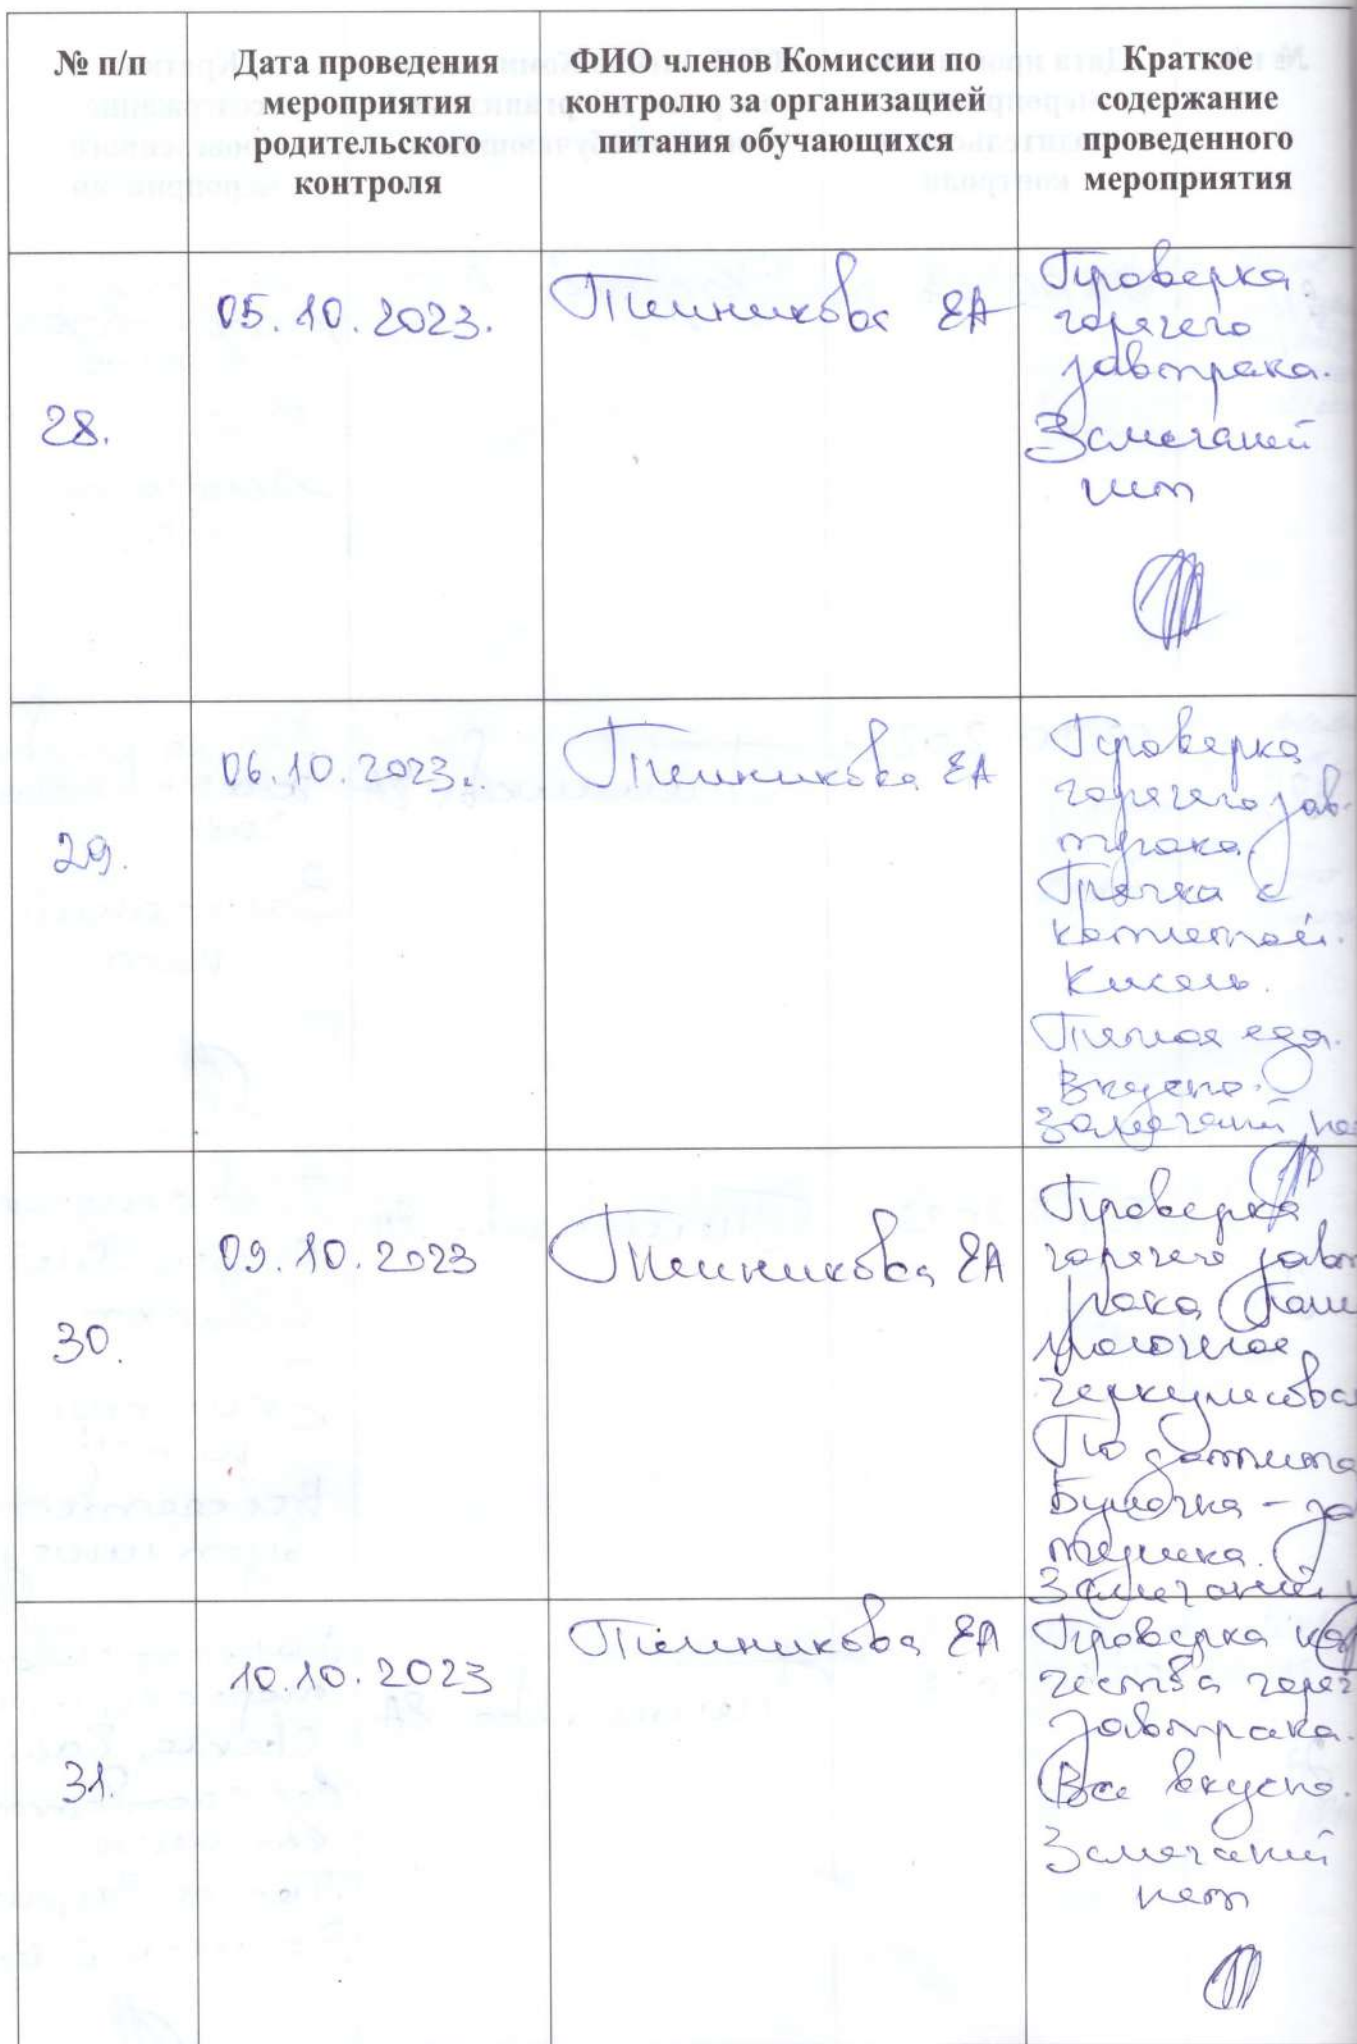 № п/п Дата проведения мероприятия родительского контроля ФИО членов Комиссии по контролю за организацией питания обучающихся Краткое содержание проведенного мероприятия
28.
05.10.2023.
ЕА
Проверка
горячего
завтрака.
Замечаний
нет
29.
06.10.2023.
ЕА
Проверка
горячего зав-
трака.
Гречка с
котлетой.
Кисель.
еда.
Вкусно.
Замечаний
30.
09.10.2023
ЕА
Проверка
горячего завт
рака
молочная
геркулесова
Булочка -
Замечаний
31.
10.10.2023
ЕА
Проверка ка
чества горяч
завтрака.
Все вкусно.
Замечаний
нет